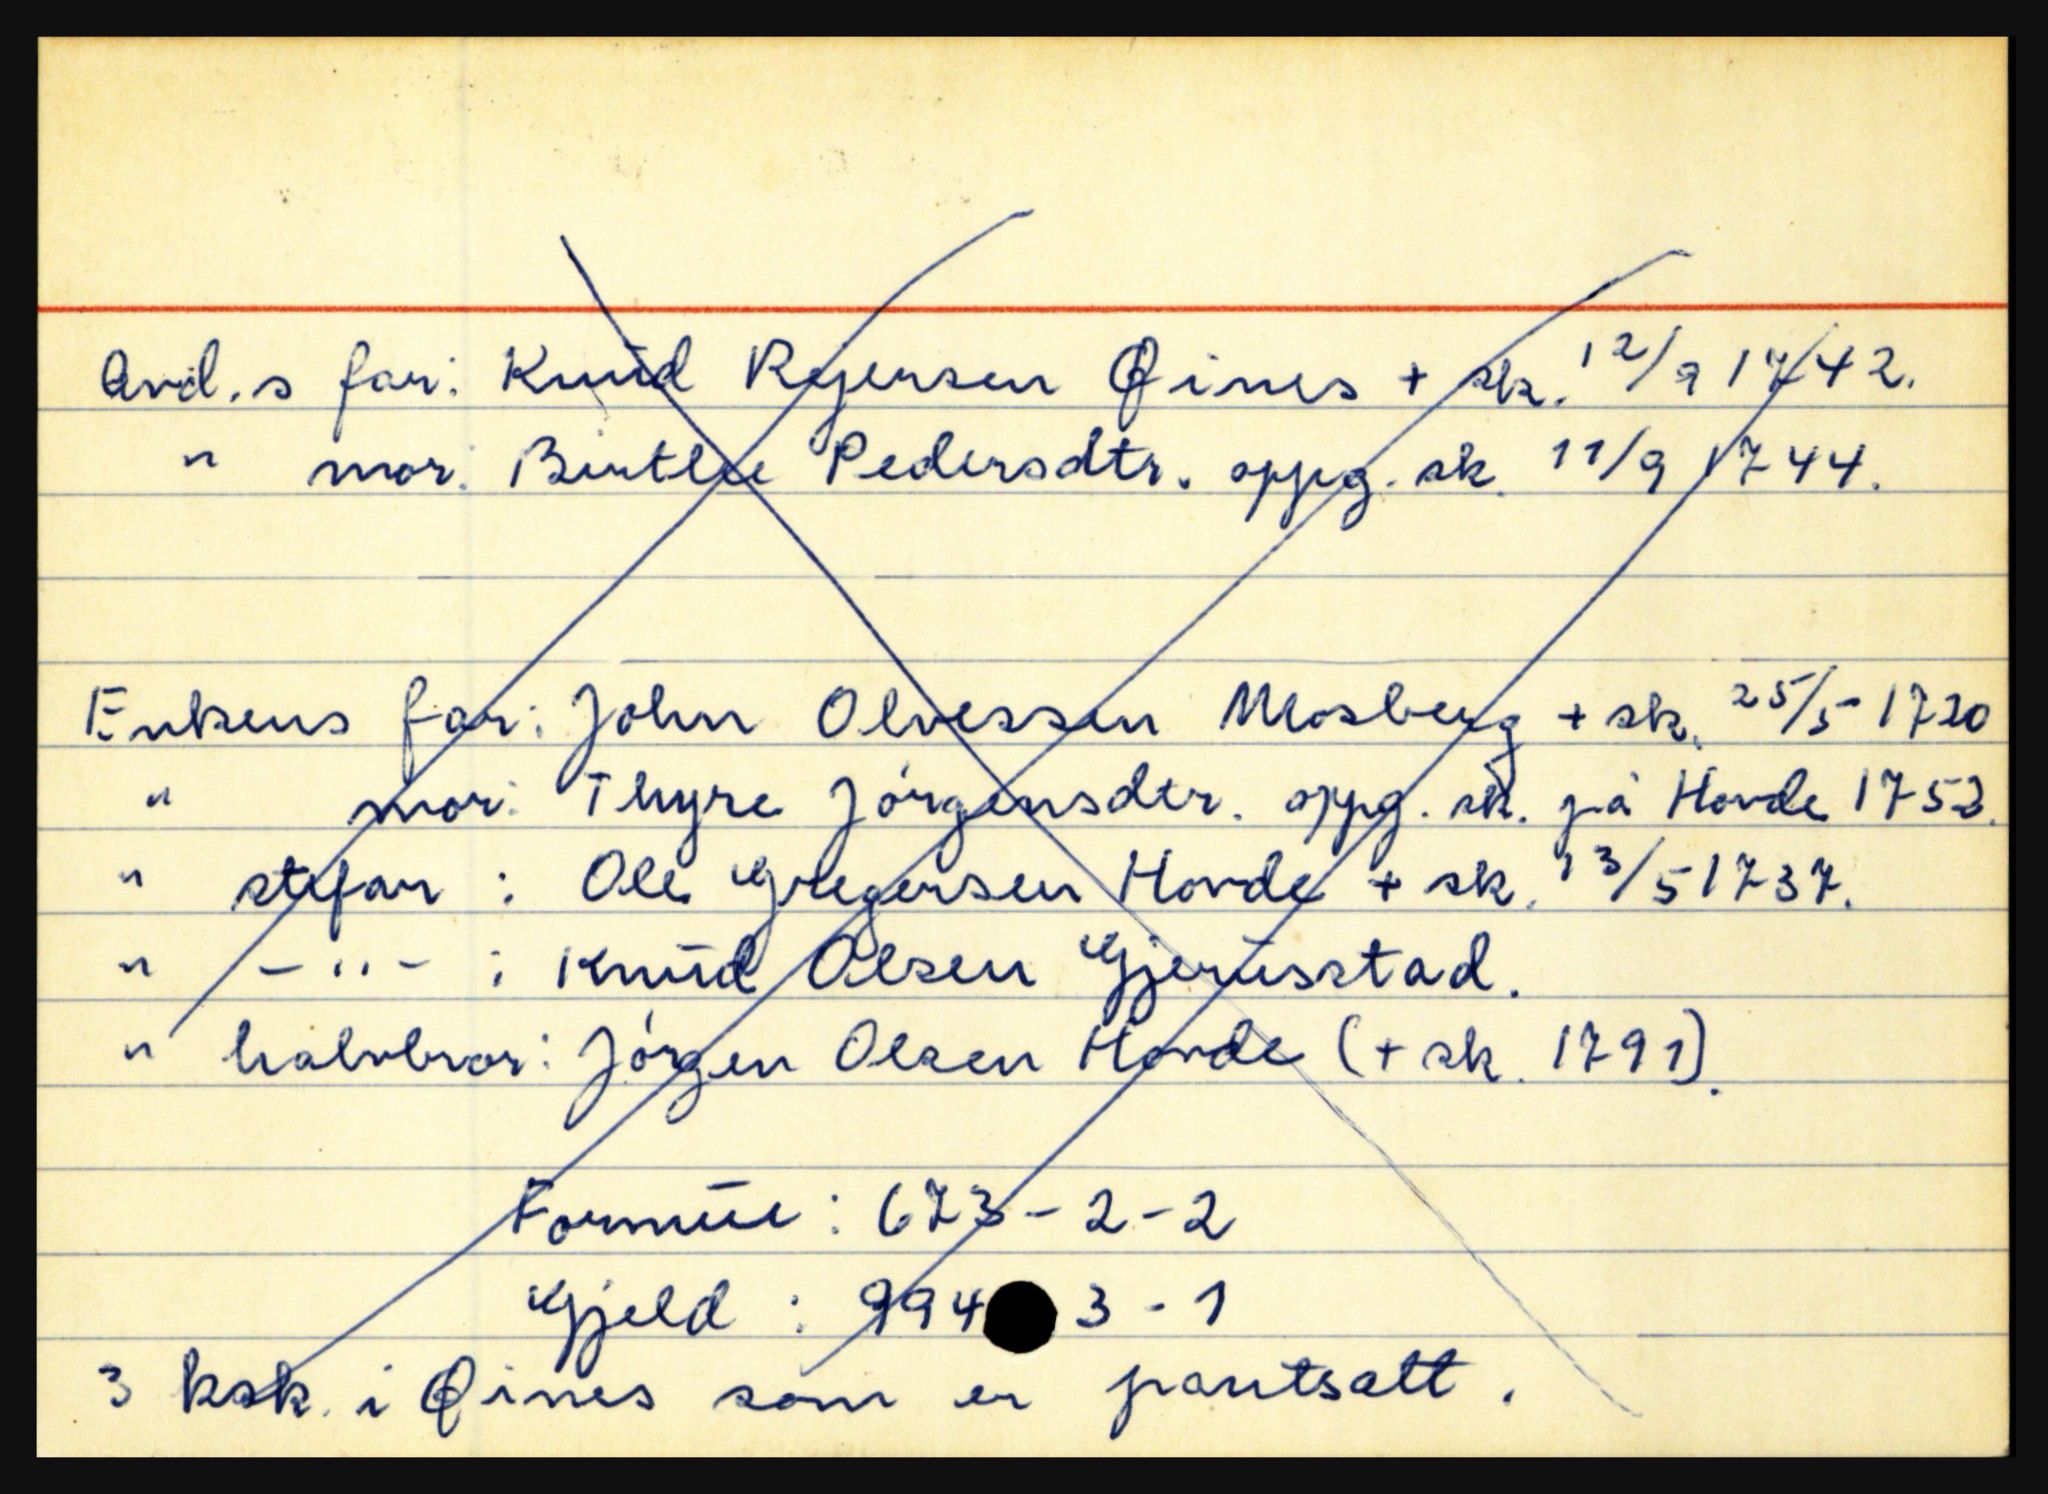 Avd.s far: Knud Rejersen Øines + sk. 12/9 1742.
" mor: Birthe Pedersdtr. oppg. sk. 11/9 1744.
Enkens far: John Olvessen Mosberg + sk. 25/5 1720
" mor: Thyre Jörgensdtr. oppg. sk. på Hovde 1752.
" stefar : Ole Gregersen Hovde + sk. 13/5 1737.
" - " - : Knud Olsen Gjerusstad.
" halvbror: Jörgen Olsen Hovde (+ sk. 1791).
Formue : 673 - 2 - 2
Gjeld : 994 3 - 1
3 ksk. i Øines som er pantsatt.